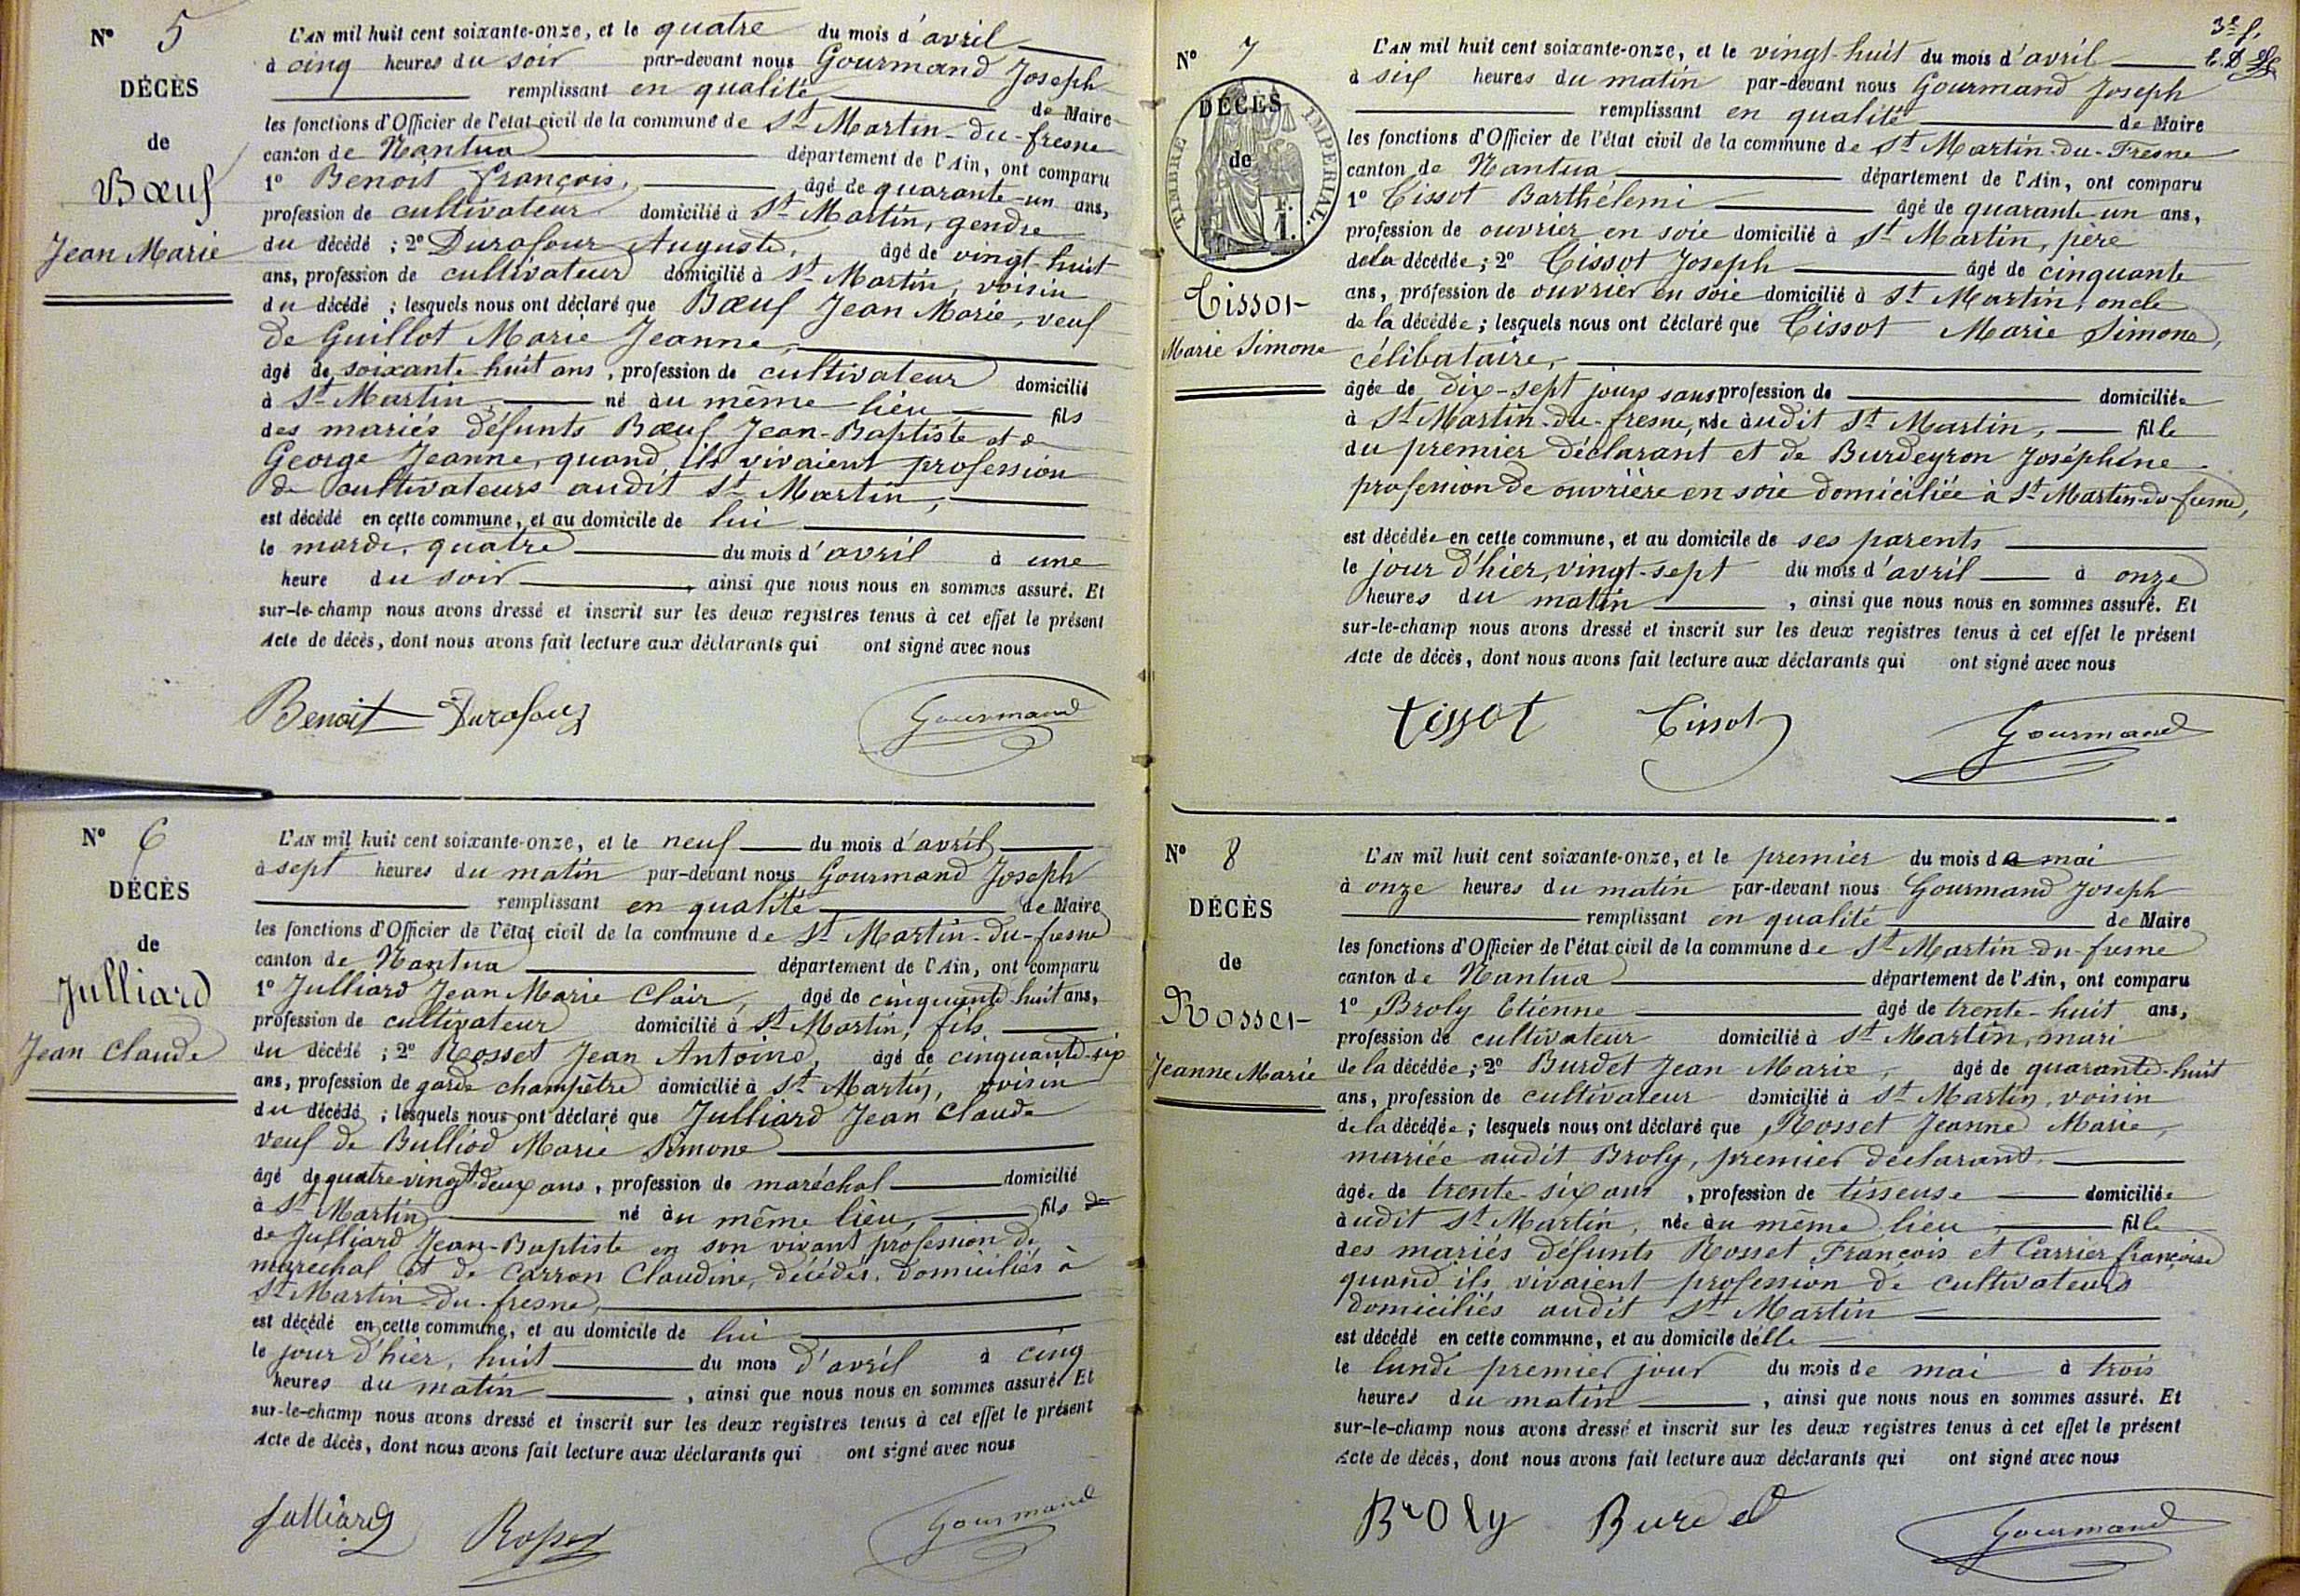 N° 5
DÉCÈS
de
Bœuf
Jean Marie
L'AN mil huit cent soixante-onze, et le quatre du mois d'avril
à cinq heures du soir par-devant nous Gourmand Joseph
remplissant en qualité de Maire
les fonctions d'Officier de l'état civil de la commune de St Martin-du-fresne
canton de Nantua département de l'Ain, ont comparu
1° Benoit françois, âgé de quarante-un ans,
profession de cultivateur domicilié à St Martin, gendre
du décédé ; 2° Durafour Auguste, âgé de vingt huit
ans, profession de cultivateur domicilié à St Martin, voisin
du décédé ; lesquels nous ont déclaré que Bœuf Jean Marie, veuf
de Guillot Marie Jeanne,
âgé de soixante huit ans, profession de cultivateur domicilié
à St Martin, né au même lieu fils
des mariés défunts Bœuf Jean-Baptiste et de
George Jeanne, quand ils vivaient profession
de cultivateurs audit St Martin,
est décédé en cette commune, et au domicile de lui
le mardi, quatre du mois d'avril à une
heure du soir, ainsi que nous nous en sommes assuré. Et
sur-le-champ nous avons dressé et inscrit sur les deux registres tenus à cet effet le présent
Acte de décès, dont nous avons fait lecture aux déclarants qui ont signé avec nous
Benoit Durafour Gourmand
N° 6
DÉCÈS
de
Julliard
Jean Claude
L'AN mil huit cent soixante-onze, et le neuf du mois d'avril
à sept heures du matin par-devant nous Gourmand Joseph
remplissant en qualité de Maire
les fonctions d'Officier de l'état civil de la commune de St Martin-du-fresne
canton de Nantua département de l'Ain, ont comparu
1° Julliard Jean Marie Clair, âgé de cinquante huit ans,
profession de cultivateur domicilié à St Martin, fils
du décédé ; 2° Rosset Jean Antoine, âgé de cinquante-six
ans, profession de garde champêtre domicilié à St Martin, voisin
du décédé ; lesquels nous ont déclaré que Julliard Jean Claude
veuf de Bulliod Marie Simone
âgé de quatre-vingt-deux ans, profession de maréchal domicilié
à St Martin né au même lieu, fils de
de Julliard Jean-Baptiste en son vivant profession de
maréchal et de Carron Claudine, décédés. domiciliés à
St Martin-du-fresne,
est décédé en cette commune, et au domicile de lui
le jour d'hier, huit du mois d'avril à cinq
heures du matin, ainsi que nous nous en sommes assuré. Et
sur-le-champ nous avons dressé et inscrit sur les deux registres tenus à cet effet le présent
Acte de décès, dont nous avons fait lecture aux déclarants qui ont signé avec nous
Julliard Rosset Gourmand
3e f.
N° 7
TIMBRE IMPERIAL.
DÉCÈS
de
Tissot
Marie Simone
L'AN mil huit cent soixante-onze, et le vingt-huit du mois d'avril
à six heures du matin par-devant nous Gourmand Joseph
remplissant en qualité de Maire
les fonctions d'Officier de l'état civil de la commune de St Martin-du-Fresne
canton de Nantua département de l'Ain, ont comparu
1° Tissot Barthélemi âgé de quarante-un ans,
profession de ouvrier en soie domicilié à St Martin, père
de la décédée ; 2° Tissot Joseph âgé de cinquante
ans, profession de ouvrier en soie domicilié à St Martin, oncle
de la décédée ; lesquels nous ont déclaré que Tissot Marie Simone,
célibataire,
âgée de dix-sept jours sans profession de domiciliée
à St Martin-du-fresne, née audit St Martin, fille
du premier déclarant et de Burdeyron Joséphine
profession de ouvrière en soie domiciliée à St Martin-du-fresne,
est décédée en cette commune, et au domicile de ses parents
le jour d'hier, vingt-sept du mois d'avril à onze
heures du matin, ainsi que nous nous en sommes assuré. Et
sur-le-champ nous avons dressé et inscrit sur les deux registres tenus à cet effet le présent
Acte de décès, dont nous avons fait lecture aux déclarants qui ont signé avec nous
tissot Tissot Gourmand
N° 8
DÉCÈS
de
Rosset
Jeanne Marie
L'AN mil huit cent soixante-onze, et le premier du mois de mai
à onze heures du matin par-devant nous Gourmand Joseph
remplissant en qualité de Maire
les fonctions d'Officier de l'état civil de la commune de St Martin-du-fresne
canton de Nantua département de l'Ain, ont comparu
1° Broly Etienne âgé de trente-huit ans,
profession de cultivateur domicilié à St Martin, mari
de la décédée ; 2° Burdet Jean Marie, âgé de quarante-huit
ans, profession de cultivateur domicilié à St Martin, voisin
de la décédée ; lesquels nous ont déclaré que Rosset Jeanne Marie,
mariée audit Broly, premier déclarant.
âgée de trente-six ans, profession de tisseuse domiciliée
audit St Martin, née au même lieu, fille
des mariés défunts Rosset François et Carrier françoise
quand ils vivaient profession de cultivateurs
domiciliés audit St Martin
est décédé en cette commune, et au domicile d'elle
le lundi premier jour du mois de mai à trois
heures du matin, ainsi que nous nous en sommes assuré. Et
sur-le-champ nous avons dressé et inscrit sur les deux registres tenus à cet effet le présent
Acte de décès, dont nous avons fait lecture aux déclarants qui ont signé avec nous
Broly Burdet Gourmand